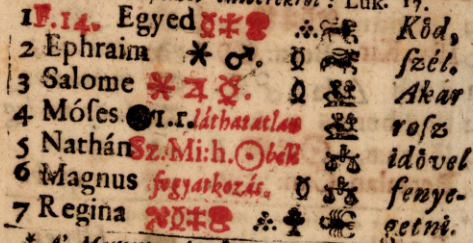 Luk. 17.
1 F.14. Egyed ☿ ✶ Köd,
2 Ephraim ✶ ♂. ☿ ſzél.
3 Salome ✶ ♃ ☿. ☿ Akar
4 Móſes ● 1.r. láthatatlan roſz
5 Nathán Sz. Mi:h. ☉ beli idővel
6 Magnus fogyatkozás. ☿ fenye-
7 Regina ☿ getni.